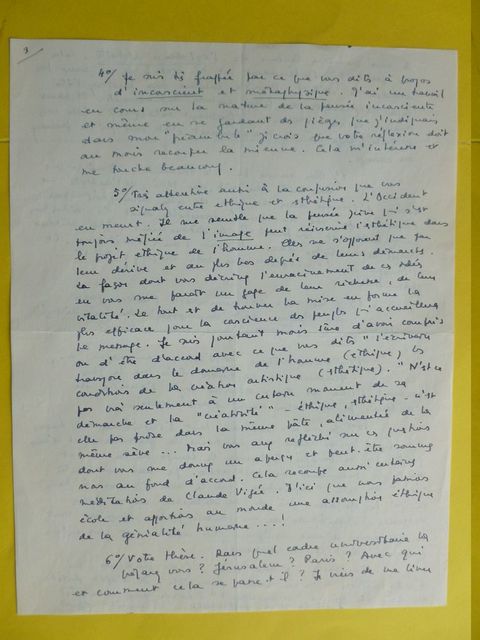 3
4°/ Je suis très frappée par ce que vous dites à propos
d'inconscient et métaphysique. J'ai un travail
en cours sur la nature de la pensée inconsciente
et même en se gardant des pièges que j'indiquais
dans mon "préambule" je crois que votre réflexion doit
au moins recouper la mienne. Cela m'intéresse et
me touche beaucoup.
5°/ Très attentive aussi à la confusion que vous
signalez entre éthique et esthétique. L'Occident
en meurt. Il me semble que la pensée juive qui s'est
toujours méfiée de l'image peut réinsérer l'esthétique dans
le projet éthique de l'homme. Elles ne s'opposent que par
leur dérive et au plus bas degré de leurs démarches.
La façon dont vous décrivez l'enracinement de ces idées
en vous me paraît un gage de leur richesse, de leur
vitalité. Le tout est de trouver la mise en forme la
plus efficace pour la conscience des peuples qui accueillera
le message. Je suis pourtant moins sûre d'avoir compris
ou d'être d'accord avec ce que vous dites "l'écrivain
transpose dans le domaine de l'homme (éthique) les
conditions de la création artistique (esthétique)." N'est-ce
pas vrai seulement à un certain moment de sa
démarche et la "créativité" - éthique, esthétique - n'est
elle pas prise dans la même pâte, alimentée de la
même sève... Mais vous avez réfléchi sur ces questions
dont vous me donnez un aperçu et peut-être sommes
nous au fond d'accord. Cela recoupe aussi certaines
méditations de Claude Vigée. D'ici que nous fassions
école et apportions au monde une assomption éthique
de la génialité humaine...!
6°/ Votre thèse. Dans quel cadre universitaire la
? Jérusalem ? Paris ? Avec qui
et comment cela se passe-t-il ? Je viens de me livrer